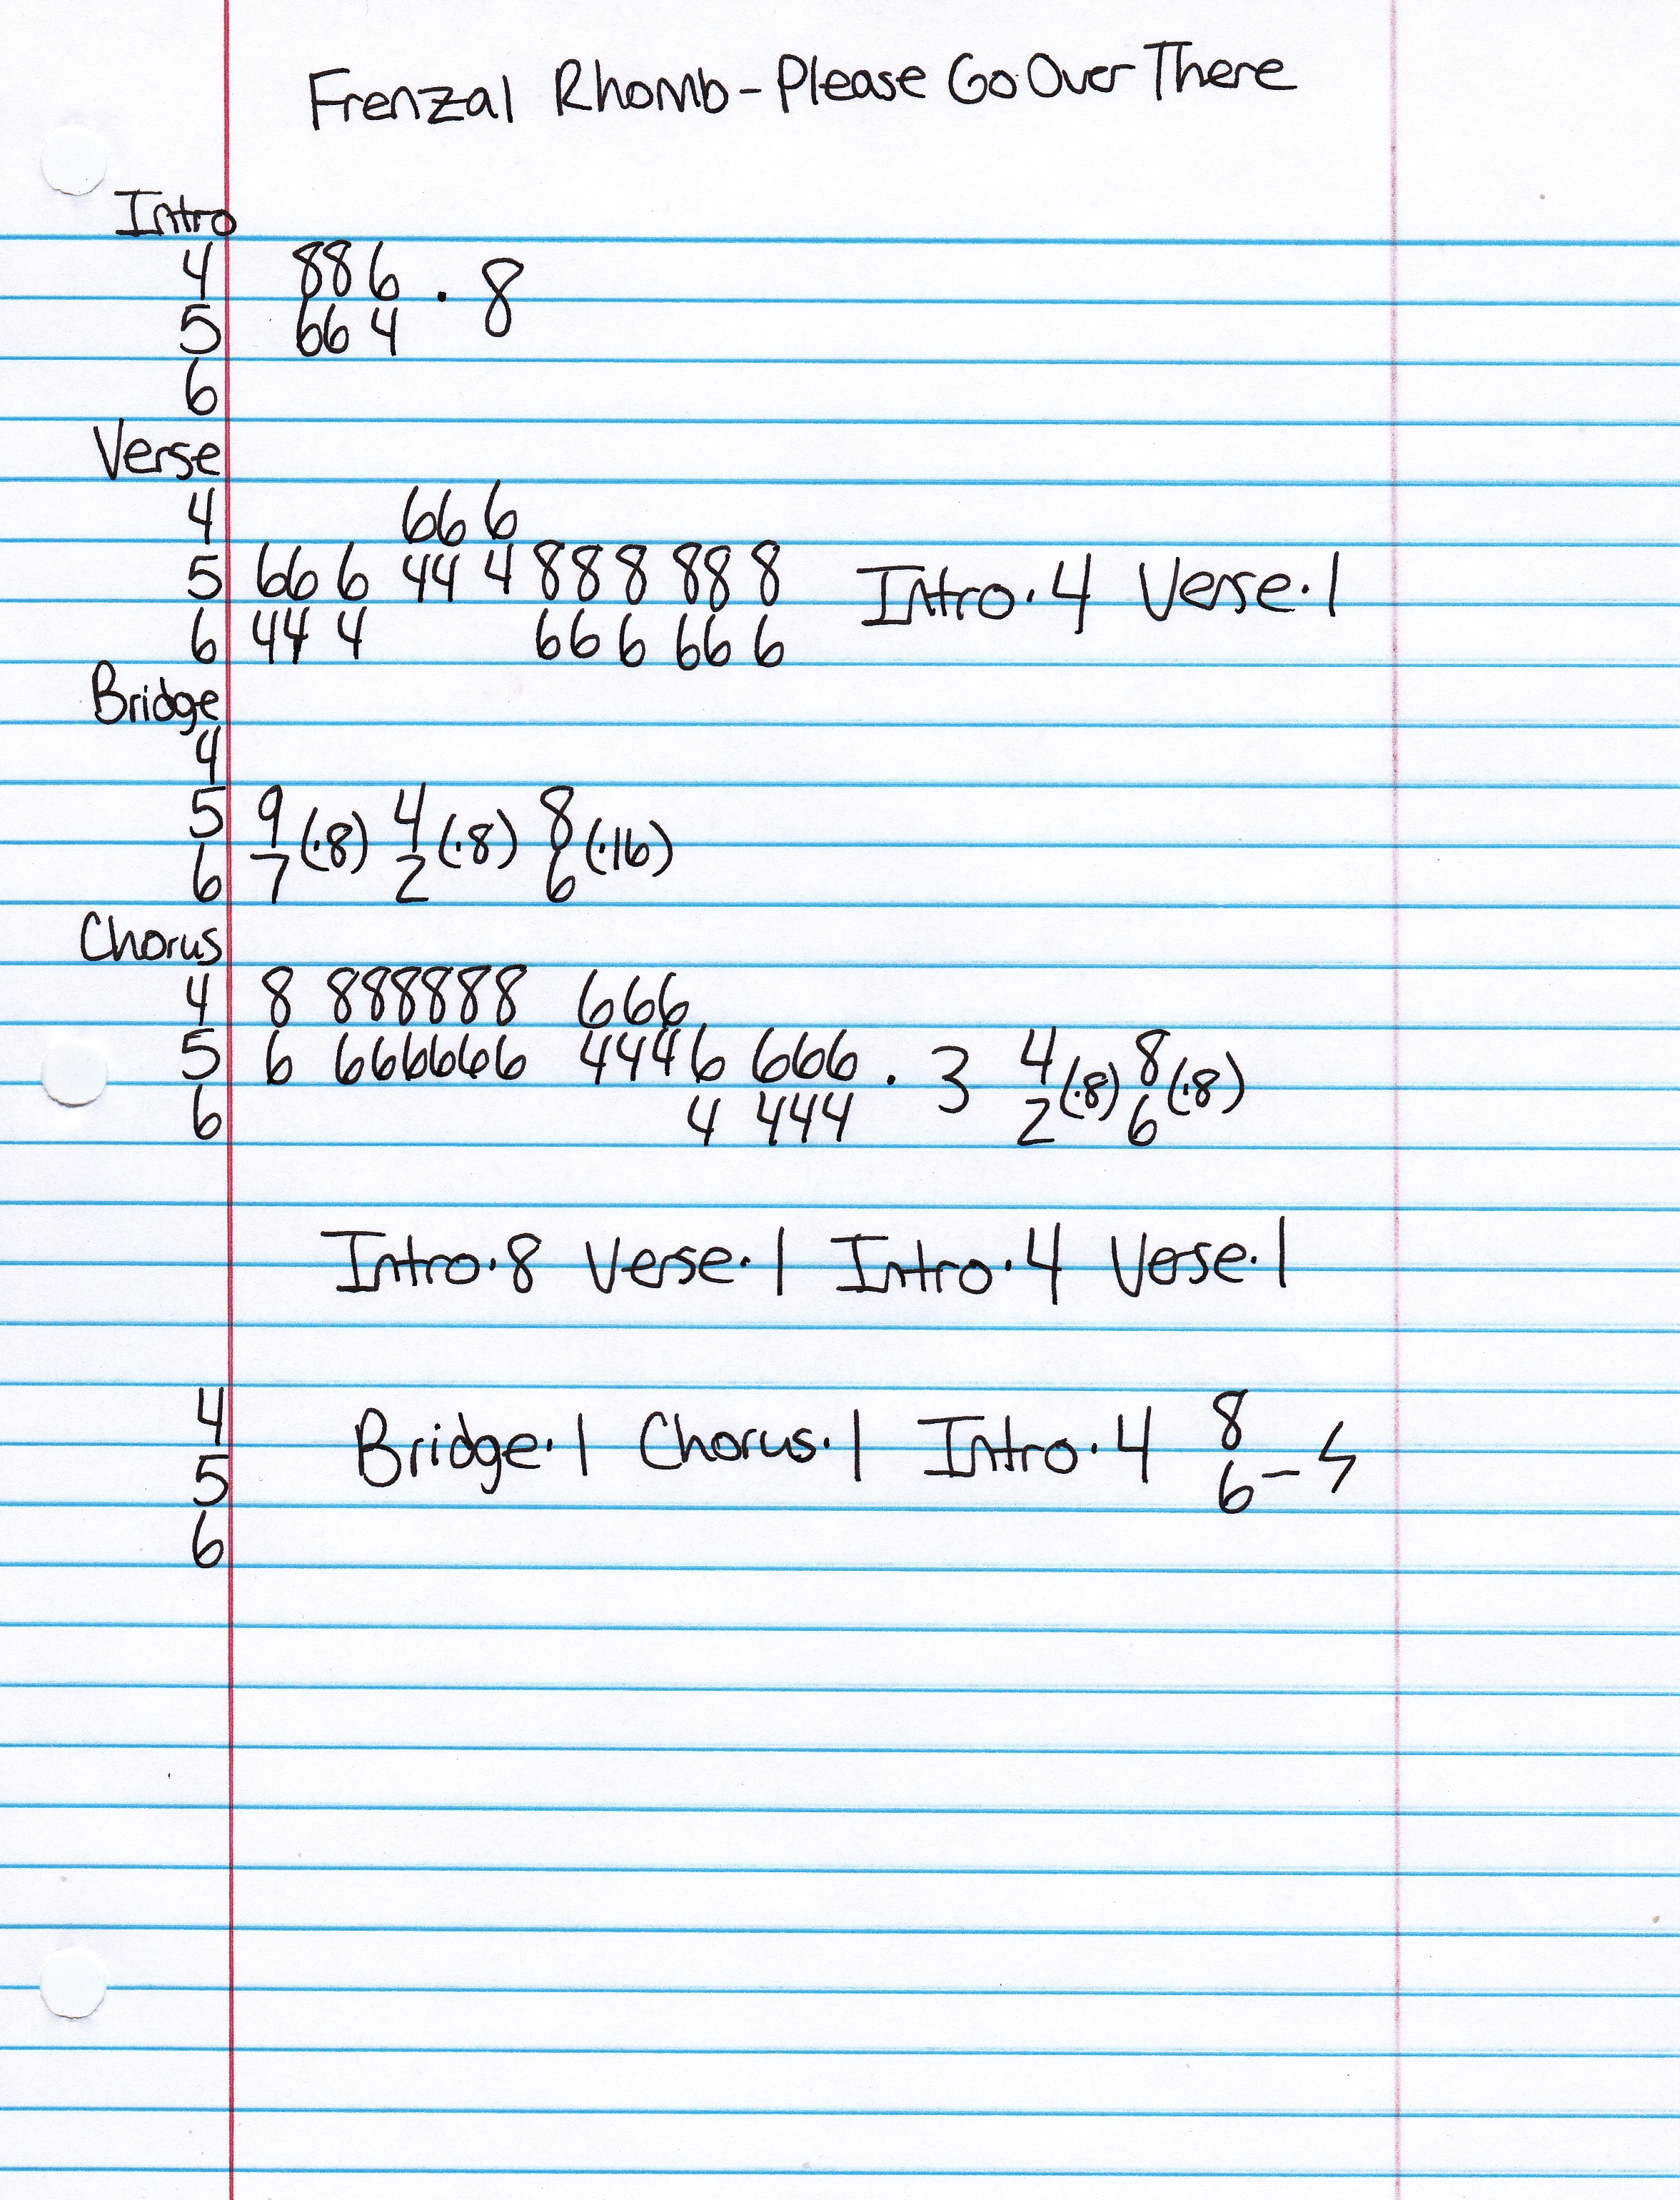 Frenzal Rhomb - Please Go Over There
Intro
4 88 6 · 8
5 66 4
6
Verse
4 66 6
5 66 6 44 4 888 88 8 Intro·4 Verse·1
6 44 4 66 6 66 6
Bridge
4
5 9 (·8) 4 (·8) 8 (·16)
6 7 2 6
Chorus
4 8 888888 666
5 6 666666 4446 666 · 3 4 (·8) 8 (·8)
6 4 444 2 6
Intro·8 Verse·1 Intro·4 Verse·1
4 Bridge·1 Chorus·1 Intro·4 8
5 6 –
6